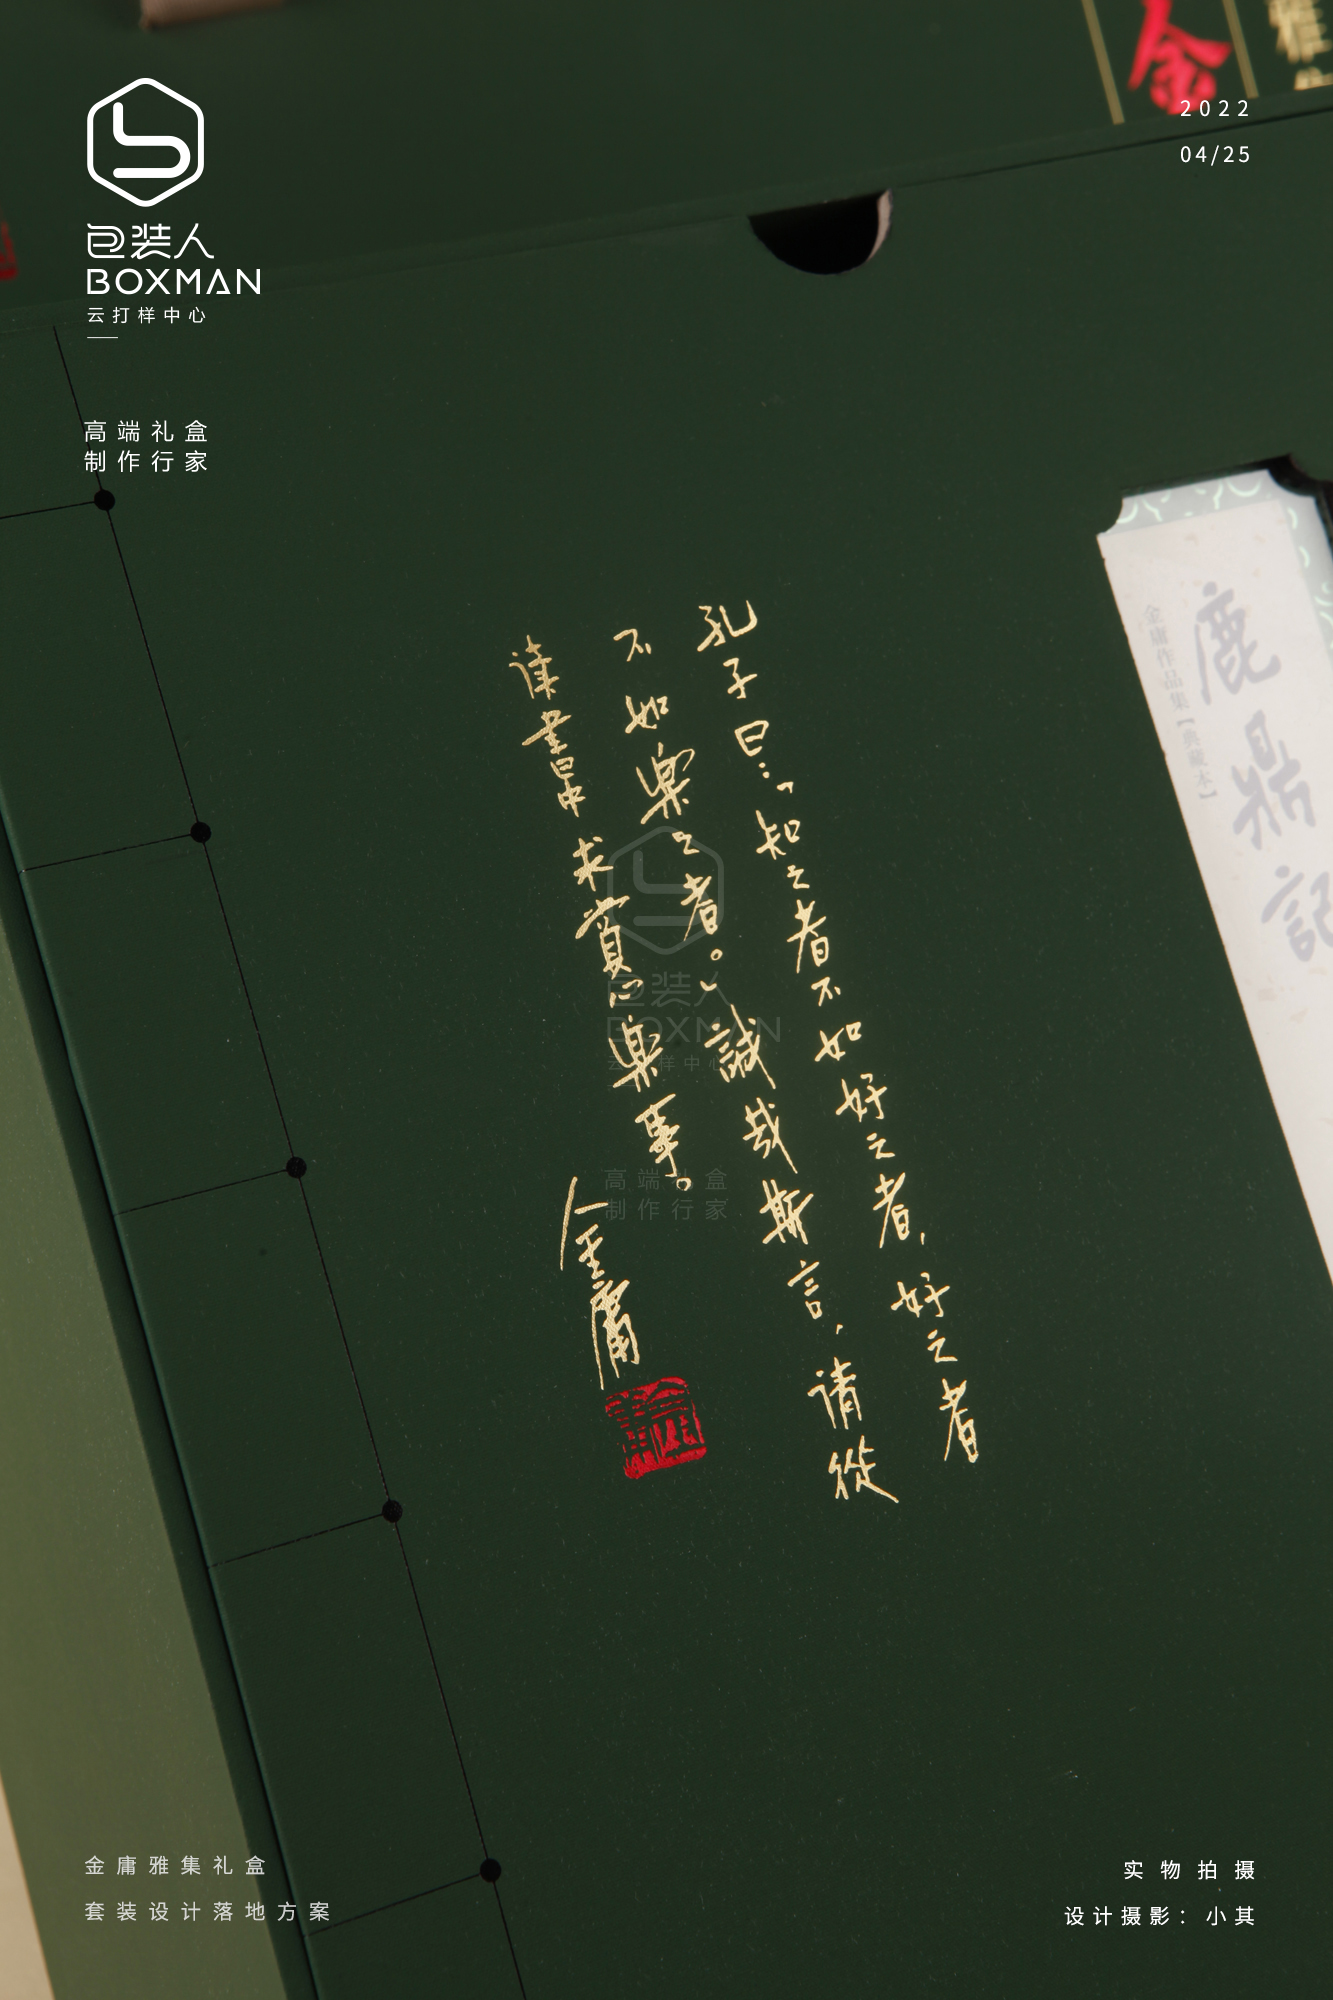 金
雅
2022
04/25
包装人
BOXMAN
云打样中心
高端礼盒
制作行家
孔子曰：「知之者不如好之者，好之者
不如樂之者。」誠哉斯言，请從
读書中求賞心樂事。
金庸
鹿鼎記
金庸作品集【典藏本】
包装人
BOXMAN
云打样中心
高端礼盒
制作行家
金庸雅集礼盒
套装设计落地方案
实物拍摄
设计摄影：小其